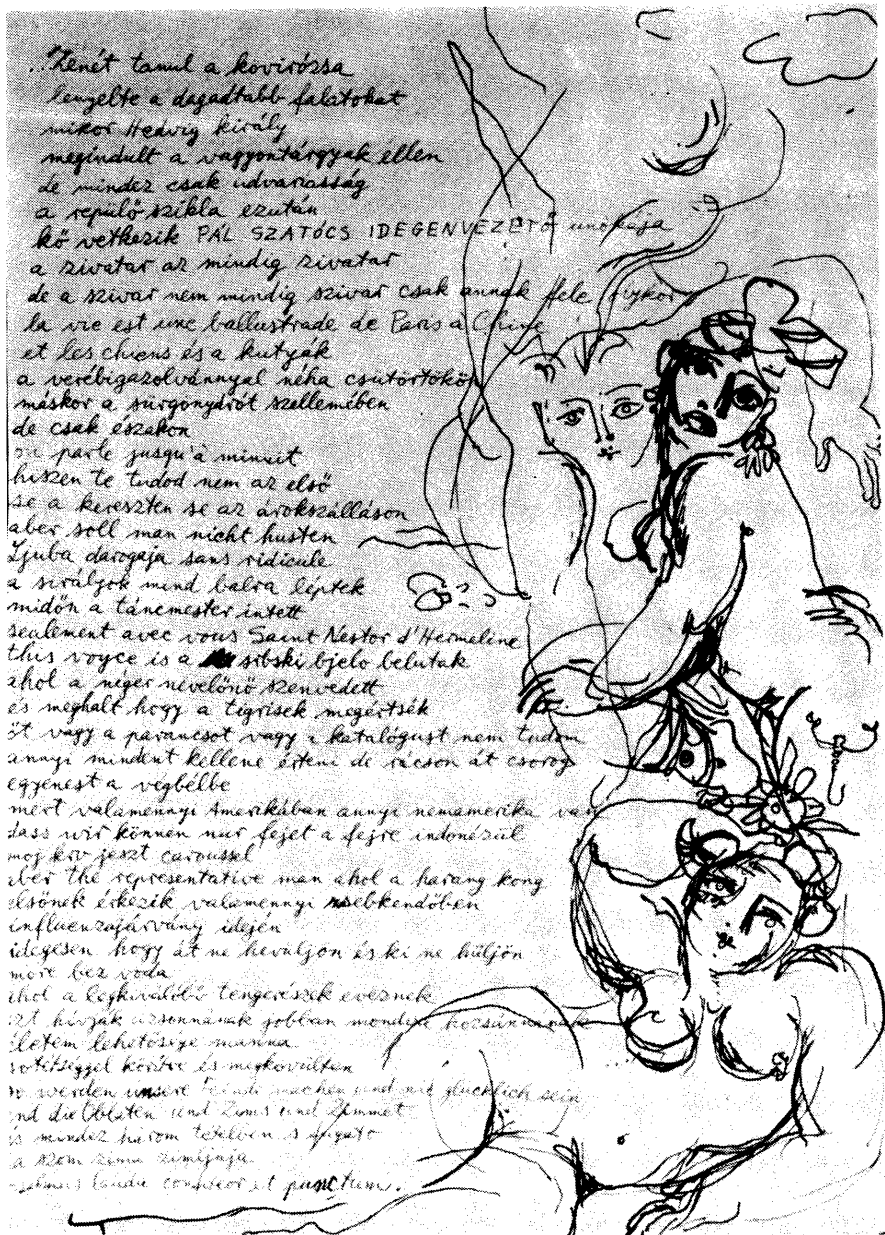 "Zenét tanul a kövirózsa
lenyelte a dagadtabb falatokat
mikor Hedvig király
megindult a vagyontárgyak ellen
de mindez csak udvariasság
a repülő szikla ezután
kő vetkezik PÁL SZATÓCS IDEGENVEZETŐ unokája
a zivatar az mindig zivatar
de a szivar nem mindig szivar csak annak fele
la vie est une ballustrade de Paris a Chine
et les chiens és a kutyák
a verébigazolvánnyal néha csütörtökön
máskor a sürgönydrót szellemében
de csak északon
on parle jusqu'à minuit
hiszen te tudod nem az első
se a kereszten se az árokszálláson
aber soll man nicht husten
Ljuba darogaja sans ridicule
a sirályok mind balra léptek
midőn a táncmester intett
seulement avec vous Saint Nestor d'Hermeline
this voyce is a srbski bjelo belutak
ahol a néger nevelőnő szenvedett
és meghalt hogy a tigrisek megértsék
őt vagy a parancsot vagy a katalógust nem tudom
annyi mindent kellene érteni de rácson át csorog
egyenest a végbélbe
mert valamennyi Amerikában annyi nemamerika van
dass wir können nur fejet a fejre indonézül
moj krv jeszt caroussel
aber the representative man ahol a harang kong
elsőnek érkezik valamennyi zsebkendőben
influenzajárvány idején
idegesen hogy át ne hevüljön és ki ne hűljön
more bez voda
ahol a legkiválóbb tengerészek eveznek
ezt hívják uzsonnának jobban mondva hozsánnának
életem lehetősége manna
sötétséggel körítve és megkövülten
so werden unsere machen und mit glücklich sein
und die Oblaten und Zoms und Zimmet
és mindez három tételben s fugato
a szom
laudie confiteor et punctum.